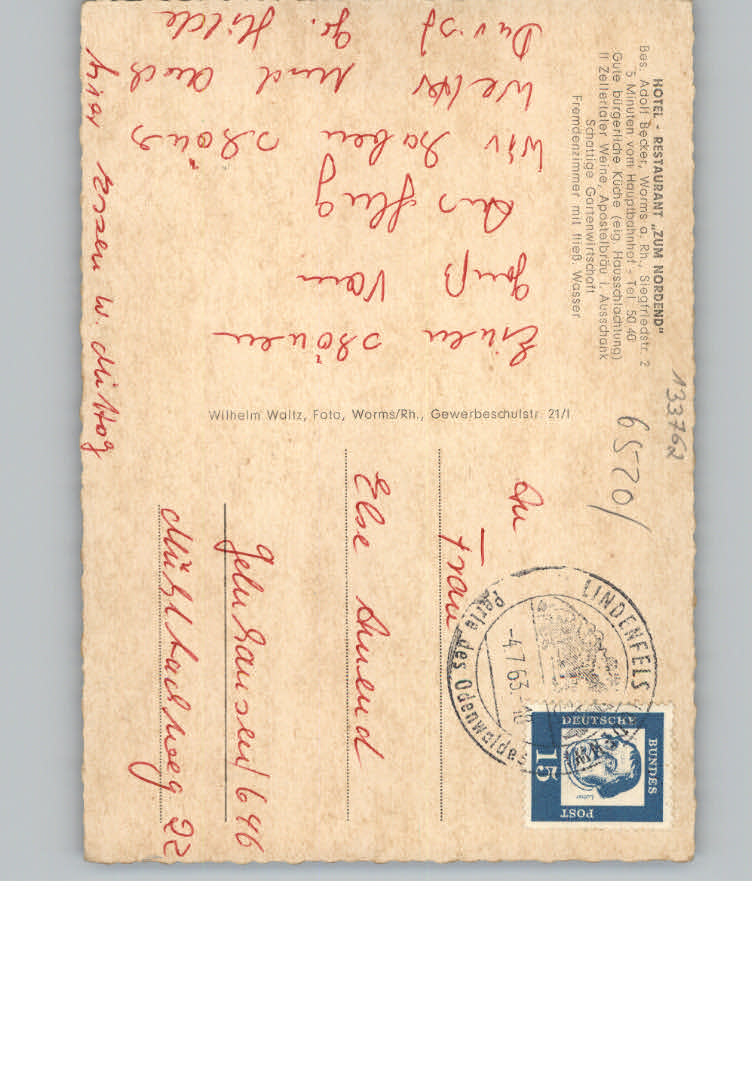 HOTEL - RESTAURANT „ZUM NORDEND"
Bes. Adolf Becker, Worms a. Rh., Siegfriedstr. 2
5 Minuten vom Hauptbahnhof - Tel. 50 40
Gute bürgerliche Küche (eig. Hausschlachtung)
ff Zellertaler Weine, Apostelbräu i. Ausschank
Schattige Gartenwirtschaft
Fremdenzimmer mit fließ. Wasser
Einen schönen
Gruß vom
Ausflug
Wir haben schöns
Wetter und auch
Durst gr. Hilde
hier Essen w. Mittag
Wilhelm Waltz, Foto, Worms/Rh., Gewerbeschulstr. 21/I
133762
6520/
An
Frau
Else
Gelnhausen/646
Mühlbachweg 22
LINDENFELS
-4.7.63-18
Perle des Odenwaldes
DEUTSCHE
BUNDES
POST
15
Luther